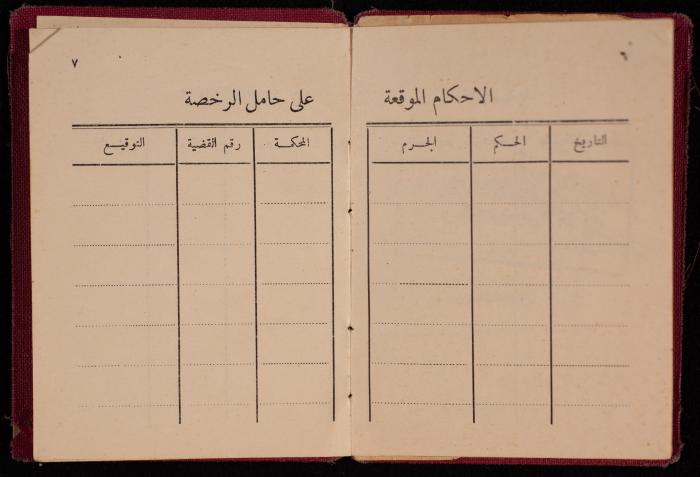 ٦
الاحكام الموقعة
التاريخ
الحكم
الجرم
٧
على حامل الرخصة
المحكمة
رقم القضية
التوقيع